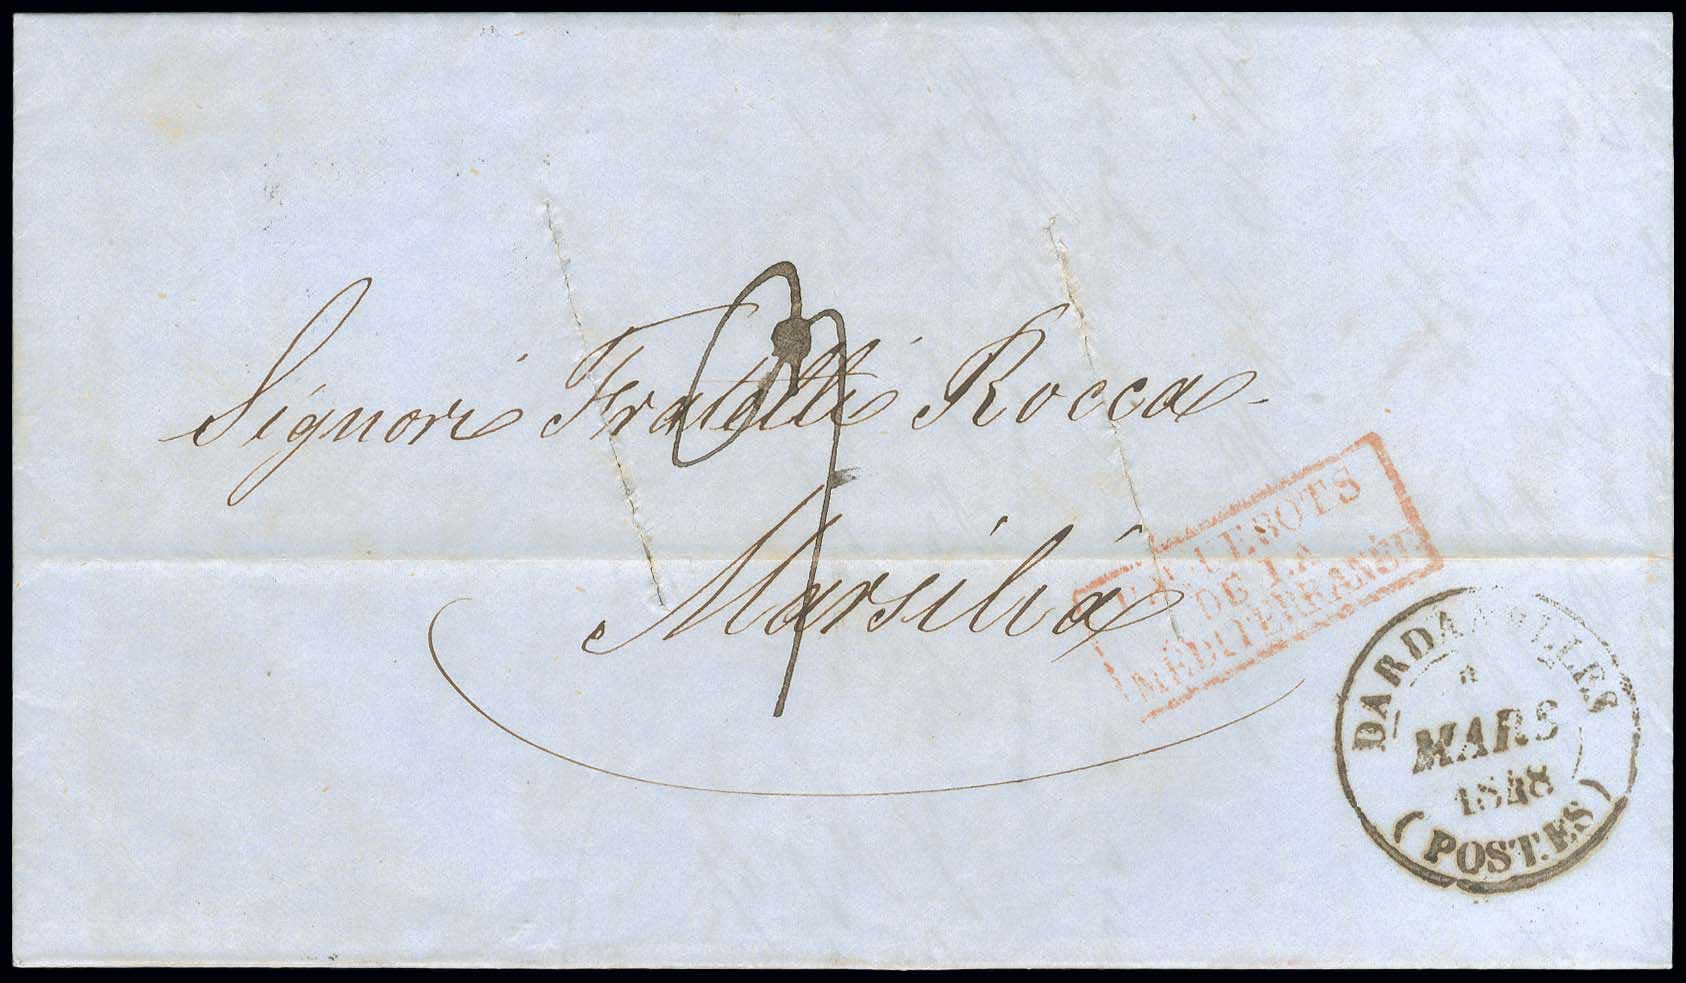 Signori Fratelli Rocca
Marsilia
PAQUEBOTS
DE LA
MÉDITERRANÉE
DARDANELLES
MARS
1848
(POSTES)